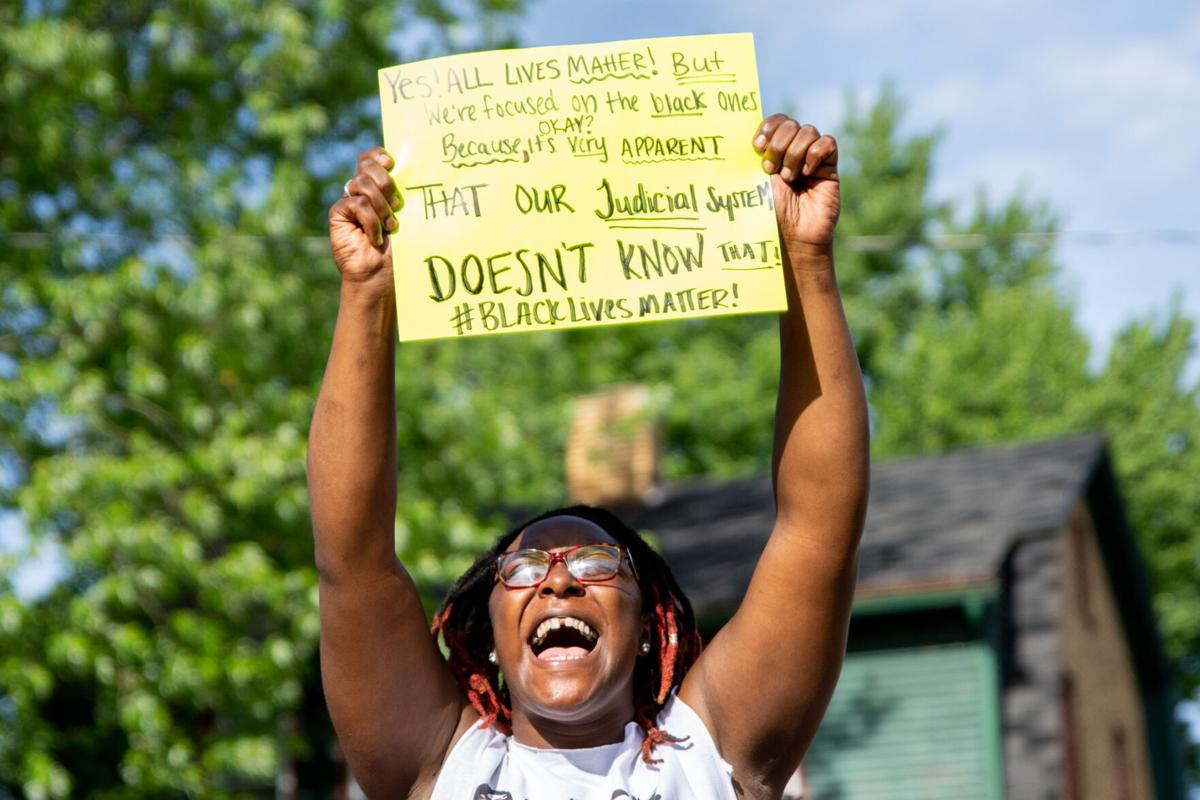 Yes! ALL LIVES MATTER! But
We're focused on the black ones
OKAY?
Because, it's very APPARENT
THAT OUR Judicial SYSTEM
DOESN'T KNOW THAT!
#BLACKLivesMATTER!